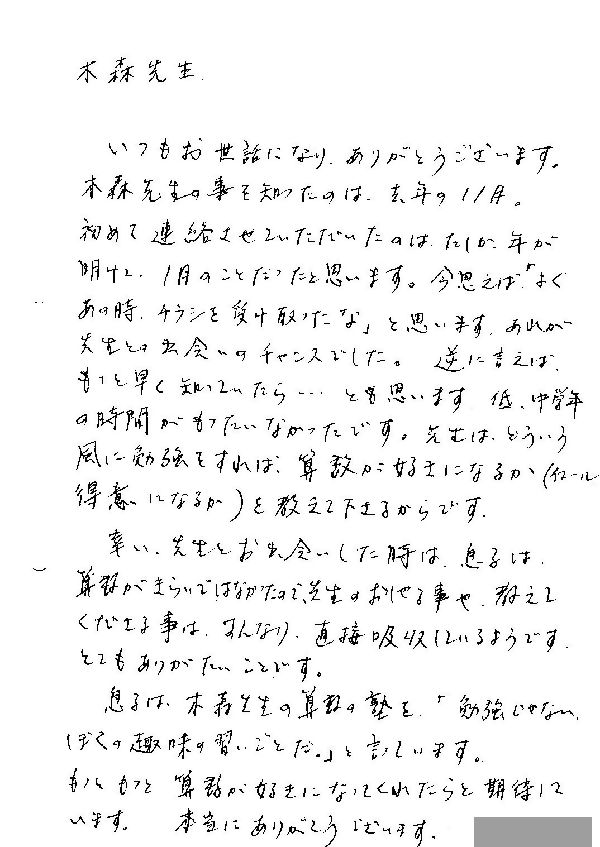 木森先生.
いつもお世話になり、ありがとうございます。
木森先生の事を知ったのは、去年の11月。
初めて連絡させていただいたのは、たしか、年が
明けて、1月のことだったと思います。今思えば、「よく
あの時、チラシを受け取ったな」と思います。あれが
先生との出会いのチャンスでした。 逆に言えば、
もっと早く知っていたら・・・ とも思います。低、中学年
の時間がもったいなかったです。先生は、どういう
風に勉強をすれば、算数が好きになるか(イコール
得意になるか)を教えて下さるからです。
幸い、先生とお出会いした時は、息子は、
算数がきらいではなかったので、先生のおっしゃる事や、教えて
くださる事は、すんなり、直接吸収しているようです。
とてもありがたいことです。
息子は、木森先生の算数の塾を、「勉強じゃない、
ぼくの趣味の習いごとだ。」と言っています。
もっともっと算数が好きになってくれたらと期待して
います。 本当にありがとうございます。